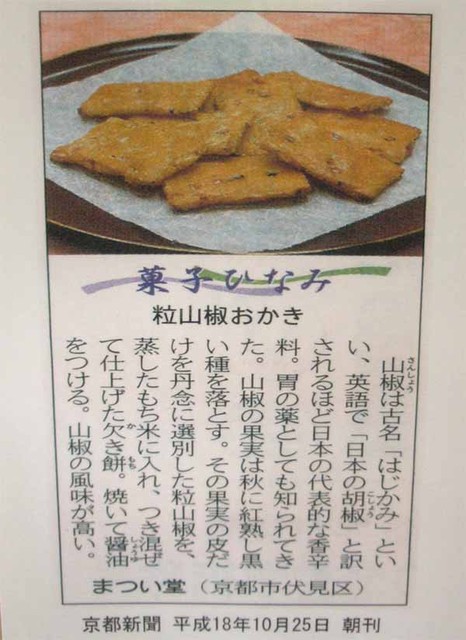 菓子ひなみ
粒山椒おかき
山椒は古名「はじかみ」とい
い、英語で「日本の胡椒」と訳
されるほど日本の代表的な香辛
料。胃の薬としても知られてき
た。山椒の果実は秋に紅熟し黒
い種を落とす。その果実の皮だ
けを丹念に選別した粒山椒を、
蒸したもち米に入れ、つき混ぜ
て仕上げた欠き餅。焼いて醤油
をつける。山椒の風味が高い。
さんしょう
こしょう
か
もち
しょうゆ
まつい堂（京都市伏見区）
京都新聞 平成18年10月25日 朝刊